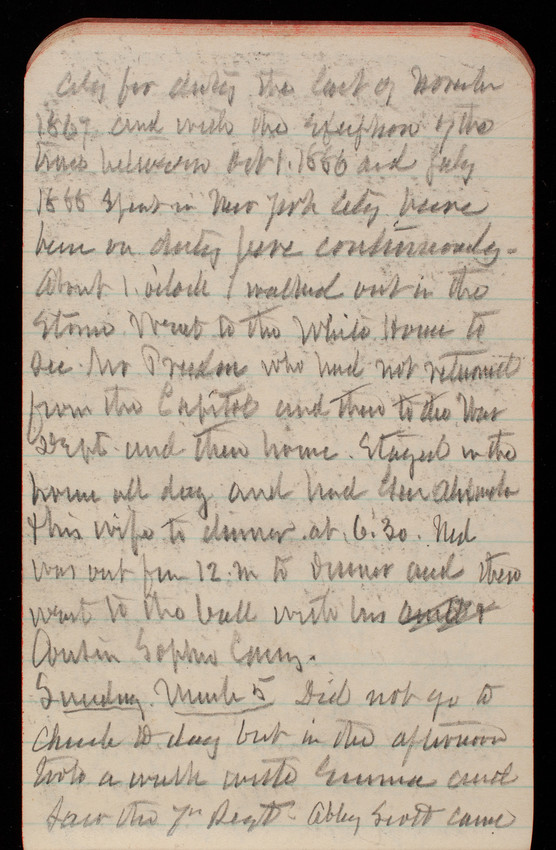 City for duty the last of November
1867 and with the exception of the
time between Oct 1. 1886 and July
1888 spent in New York City have
been on duty here continuously -
About 1 o'clock I walked out in the
storm. Went to the White House to
see Mr Preedon who had not returned
from the Capitol and then to the War
Dept and then home. Stayed in the
house all day and had Gen
& his wife to dinner at 6.30. Ned
was out from 12. m to Dinner and then
went to the ball with his
Cousin Sophie
Sunday. March 5 Did not go to
church to day but in the afternoon
took a walk with Emma and
saw the 7th Regt. Abby Scott came